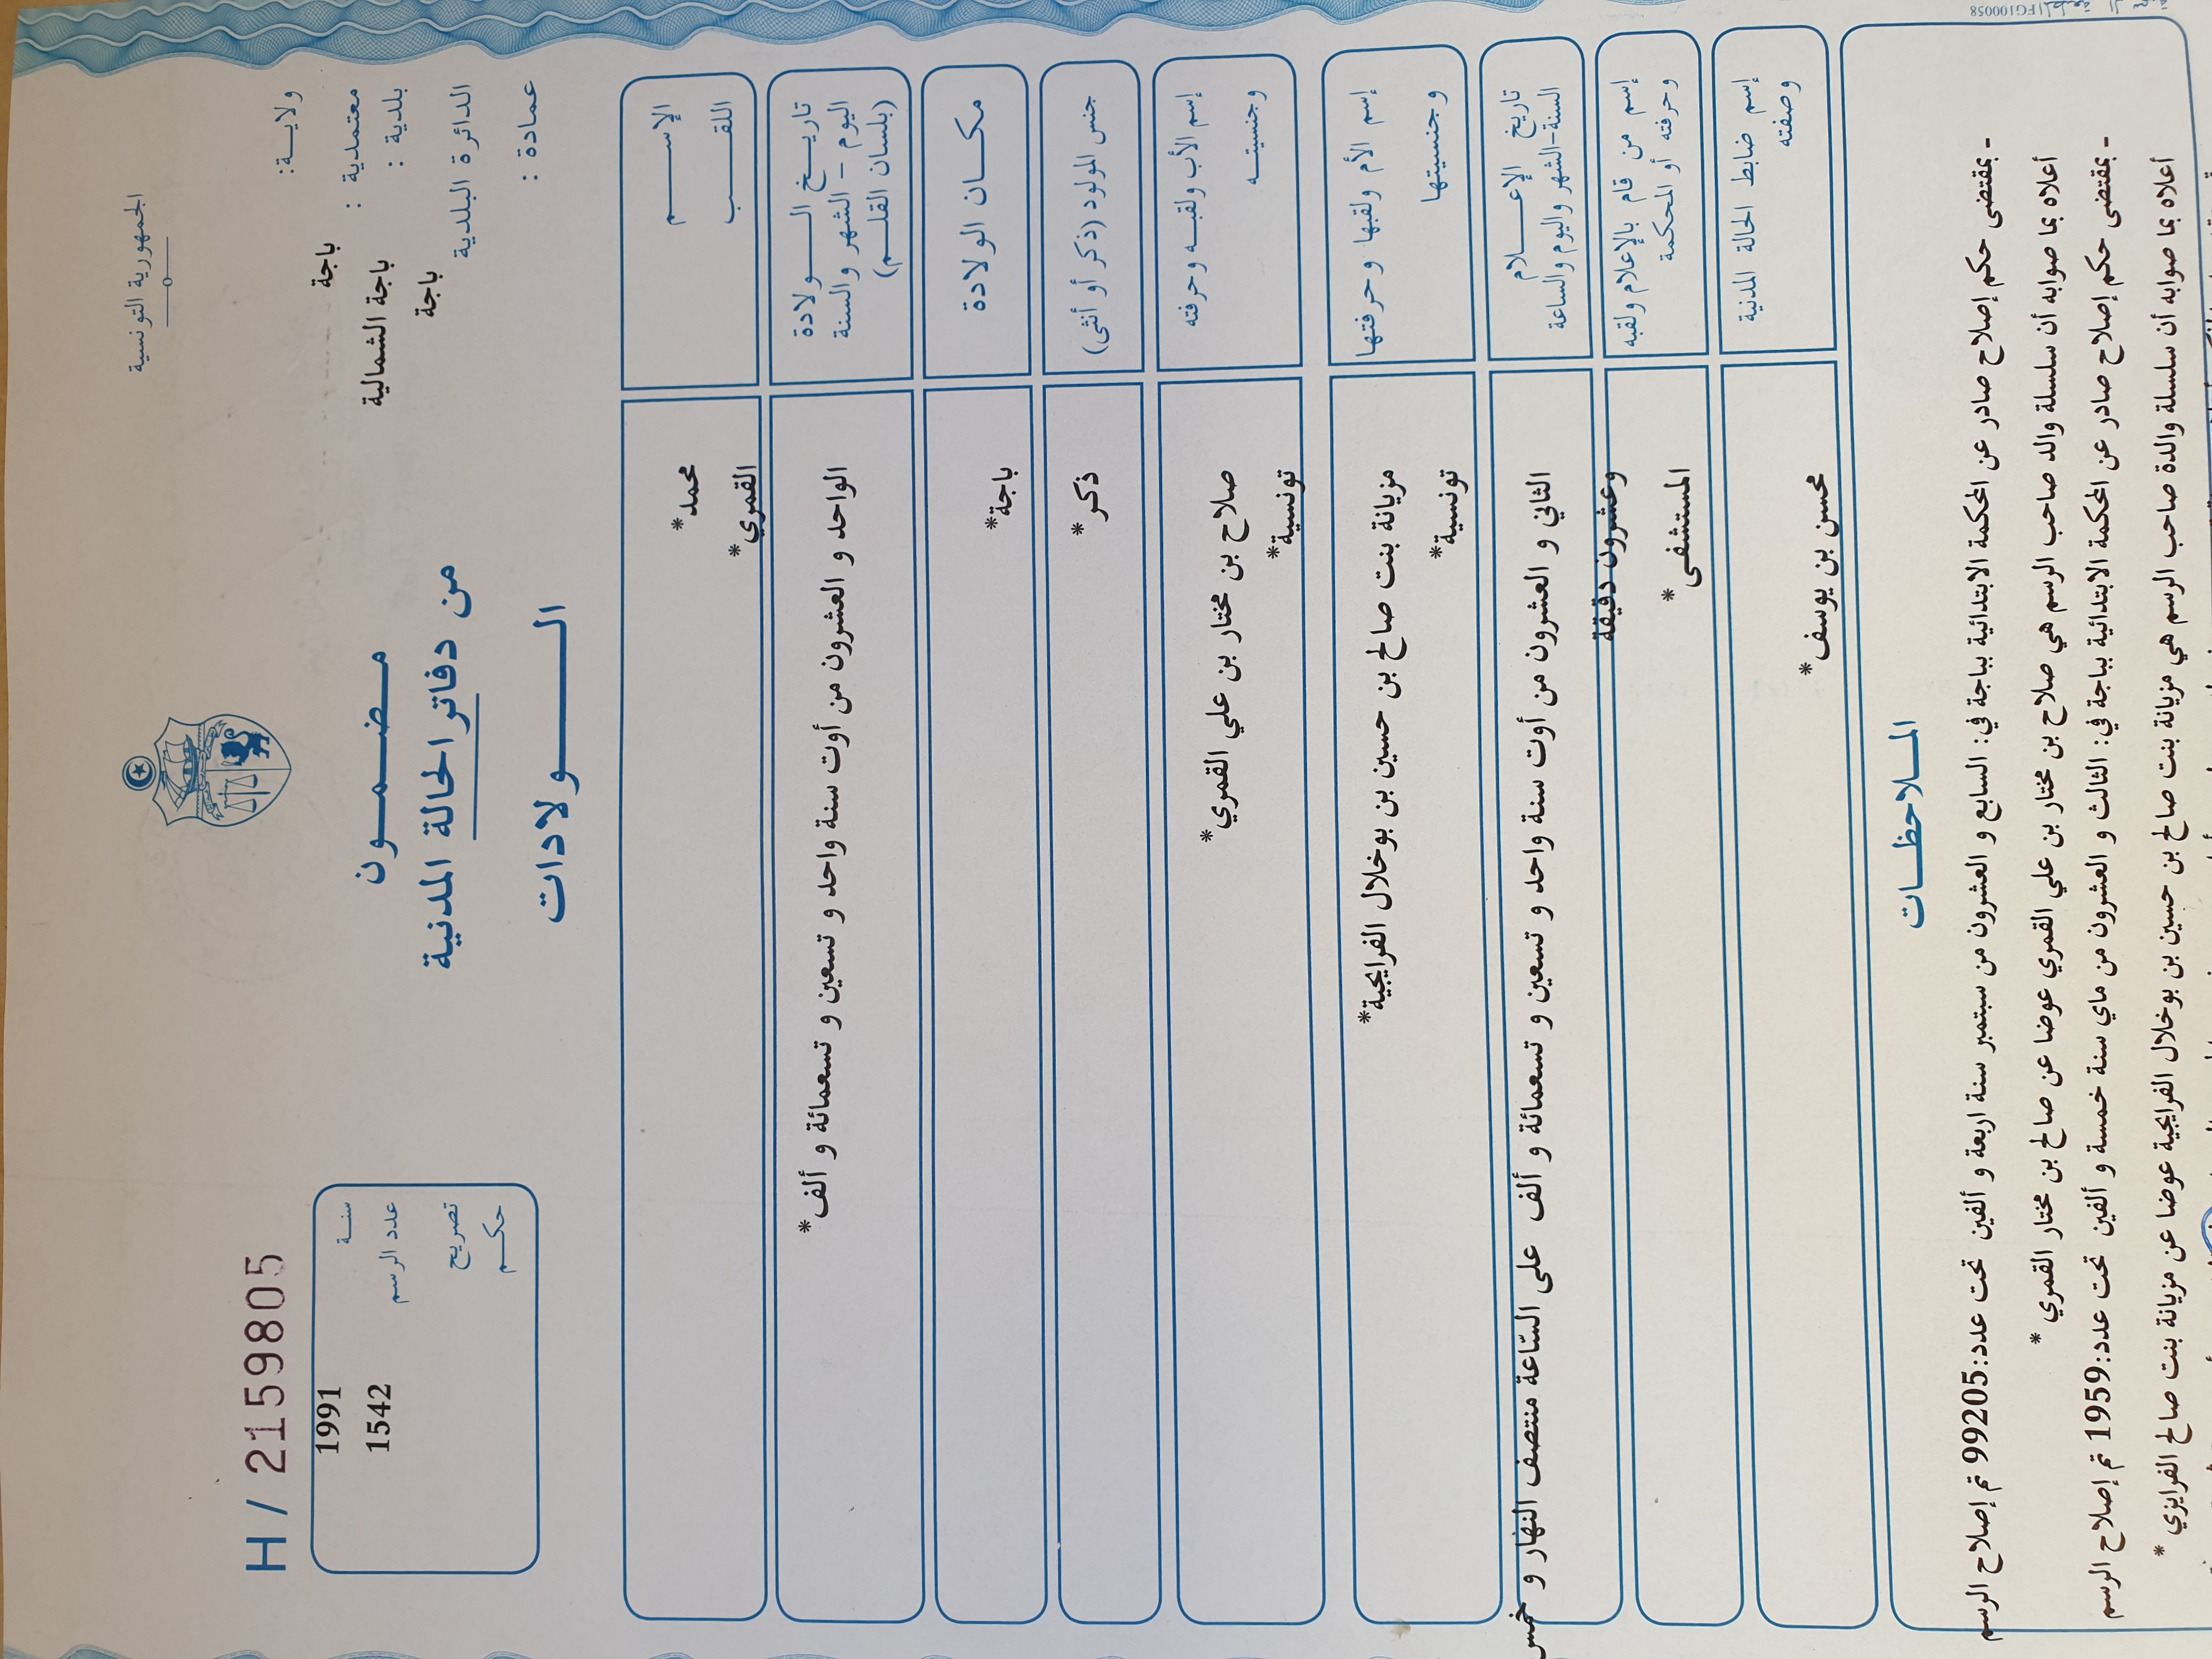 الجمهورية التونسية
ولايـــة: باجة
معتمدية : باجة الشمالية
بلدية : باجة
الدائرة البلدية
عمادة :
مـضـمـــون
من دفاتر الحالة المدنية
الـــــولادات
H / 2159805
سنـة 1991
عدد الرسم 1542
تصريح
حكـم
الإســـم محمد*
اللقـــب القمري*
تاريــخ الـــولادة
اليوم - الشهر والسنة
(بلسان القلـم)
الواحد و العشرون من أوت سنة واحد و تسعين و تسعمائة و ألف*
مكـــان الولادة باجة*
جنس المولود (ذكر أو أنثى) ذكر*
إسم الأب ولقبـه وحرفته صلاح بن مختار بن علي القمري*
وجنسيتـــه تونسية*
إسم الأم ولقبها و حرفتها مزيانة بنت صالح بن حسين بن بوخلال الفرايجية*
وجنسيتها تونسية*
تاريخ الإعـــلام
السنة-الشهر واليوم والساعة
الثاني و العشرون من أوت سنة واحد و تسعين و تسعمائة و ألف على السّاعة منتصف النهار و خمس
وعشرون دقيقة
إسم من قام بالإعلام ولقبه
وحرفته أو المحكمة
المستشفى*
إسم ضابط الحالة المدنية
وصفته
محسن بن يوسف*
المـلاحظـات
- بمقتضى حكم إصلاح صادر عن المحكمة الابتدائية بباجة في: السابع و العشرون من سبتمبر سنة اربعة و ألفين تحت عدد:99205 تم إصلاح الرسم
أعلاه بما صوابه أن سلسلة والد صاحب الرسم هي صلاح بن مختار بن علي القمري عوضا عن صالح بن مختار القمري *
- بمقتضى حكم إصلاح صادر عن المحكمة الابتدائية بباجة في: الثالث و العشرون من ماي سنة خمسة و ألفين تحت عدد:1959 تم إصلاح الرسم
أعلاه بما صوابه أن سلسلة والدة صاحب الرسم هي مزيانة بنت صالح بن حسين بن بوخلال الفرايجية عوضا عن مزيانة بنت صالح الفرايزي *